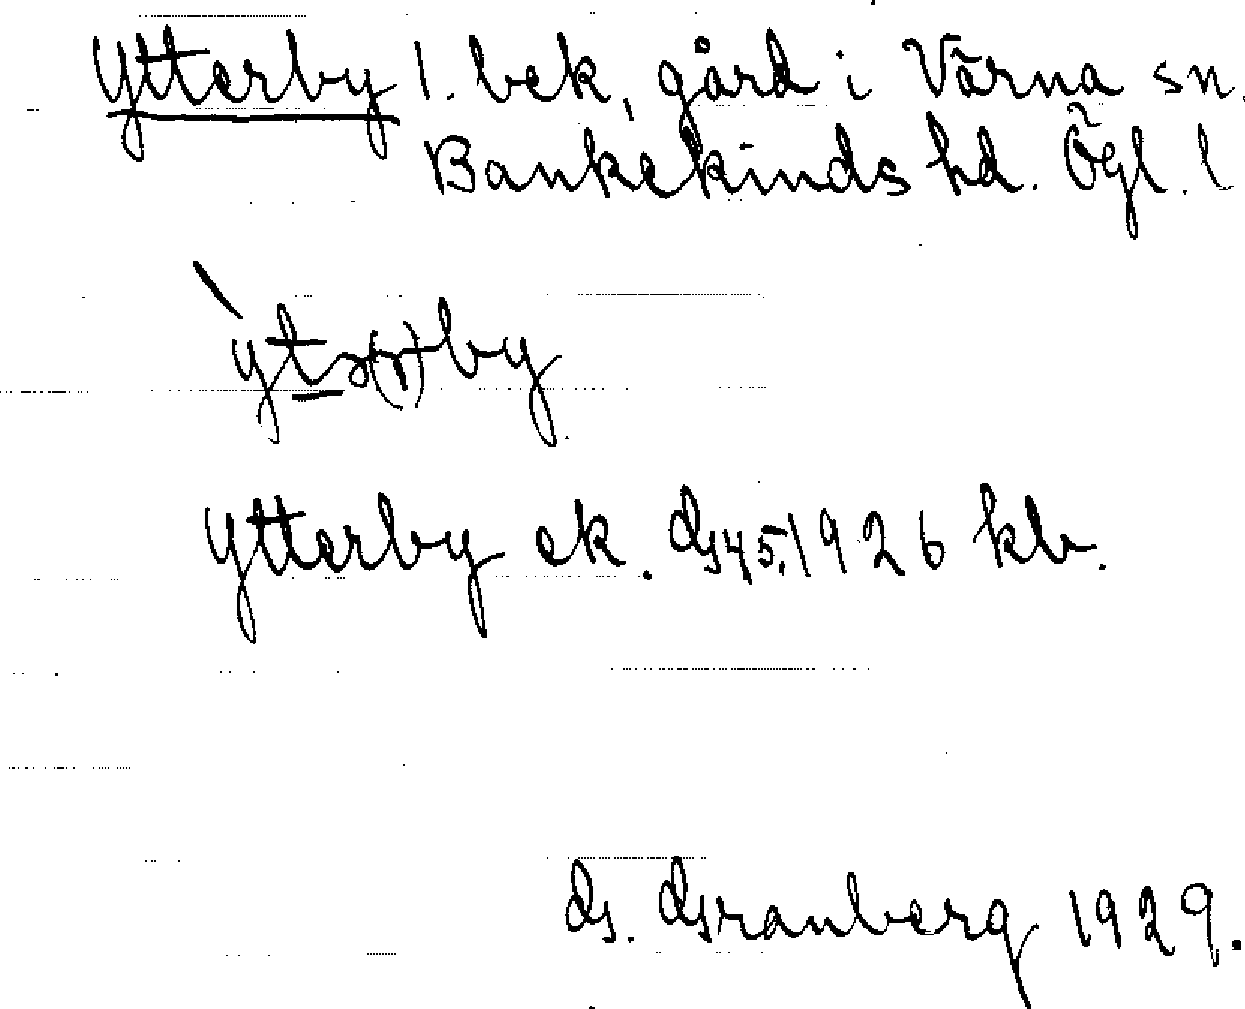 Ytterby 1. bek, gård i Värna sn.
Bankekinds hd. Ögl. l
`ytə(r)by
Ytterby ek. G45.1926 kb.
G. Granberg 1929.